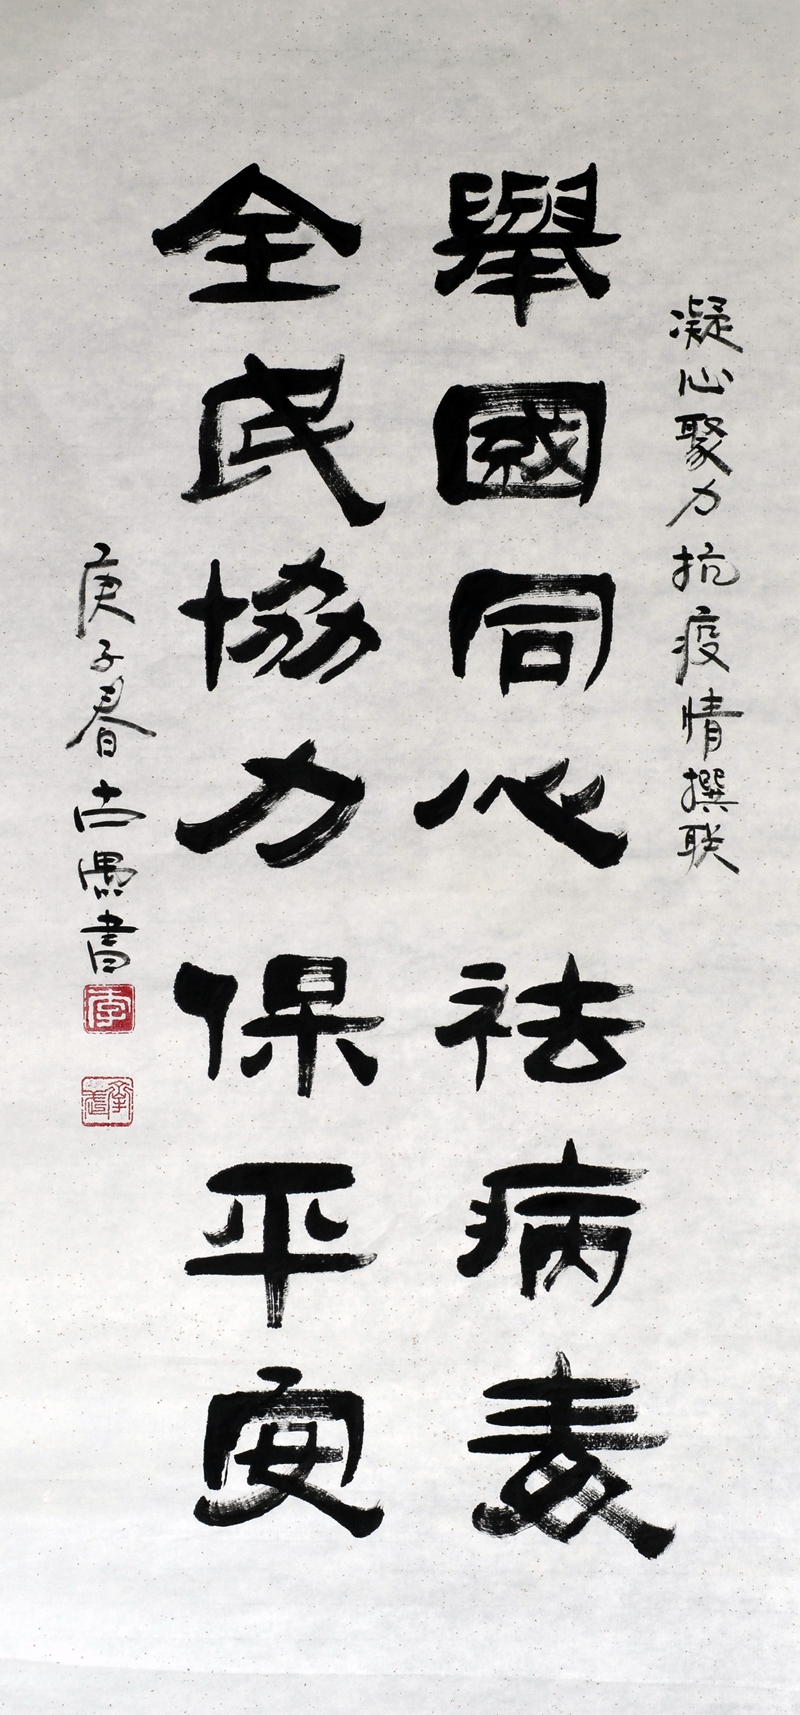 凝心聚力抗疫情撰联
舉國同心祛病毒
全民協力保平安
庚子春古愚書